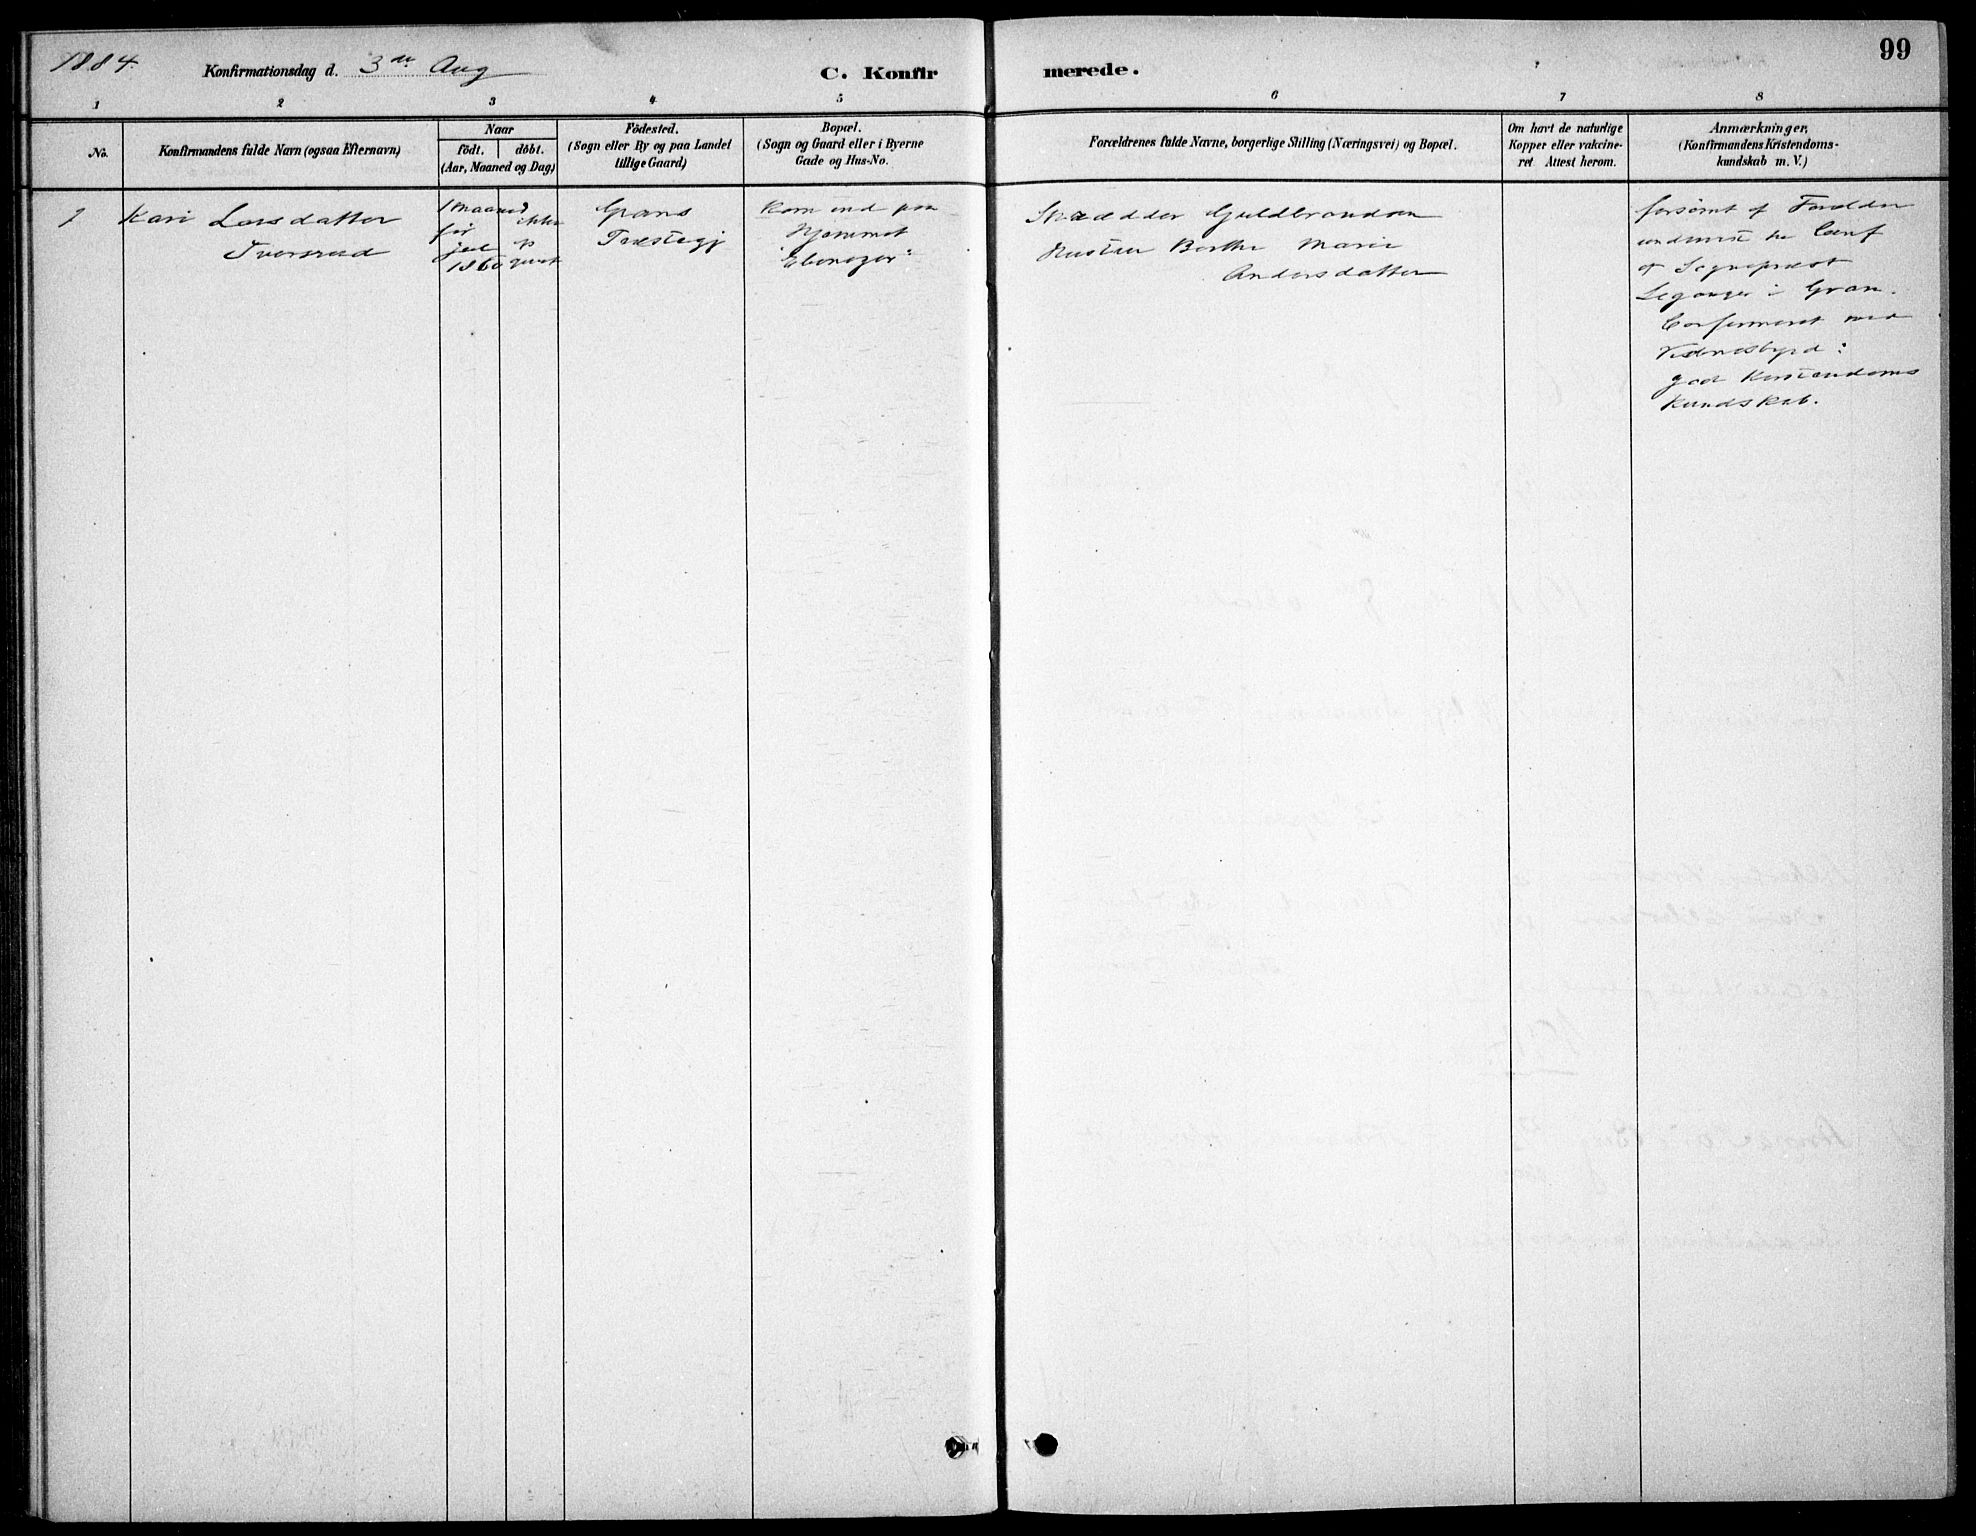 1884. Konfirmationsdag d. 3de Aug C. Konfirmerede. 99
1 2 3 4 5 6 7 8
No.
Konfirmandens fulde Navn (ogsaa Efternavn)
Naar
födt. döbt.
(Aar, Maaned og Dag)
Födested.
(Sogn eller By og paa Landet
tillige Gaard)
Bopæl.
(Sogn og Gaard eller i Byerne
Gade og Hus-No.
Forældrenes fulde Navne, borgerlige Stilling (Næringsvei) og Bopæl.
Om havt de naturlige
Kopper eller vakcine-
ret Attest herom.
Anmærkninger,
(Konfirmandens Kristendoms-
kundskab m. V.)
1
Kari Larsdatter
Tversrud
1 Maaned
før
jul
1860
ikke
opgivet
Grans
Præstegj
Kom ind paa
Hjemmet
"Ebenezer"
Skrædder Guldbrandsen
Hustru Berthe Marie
Andersdatter
forsömt af Forældre
undervist til Conf
af Sognepræst
i Gran.
Confirmeret med
Vidnesbyrd:
god Kristendoms
Kundskab.